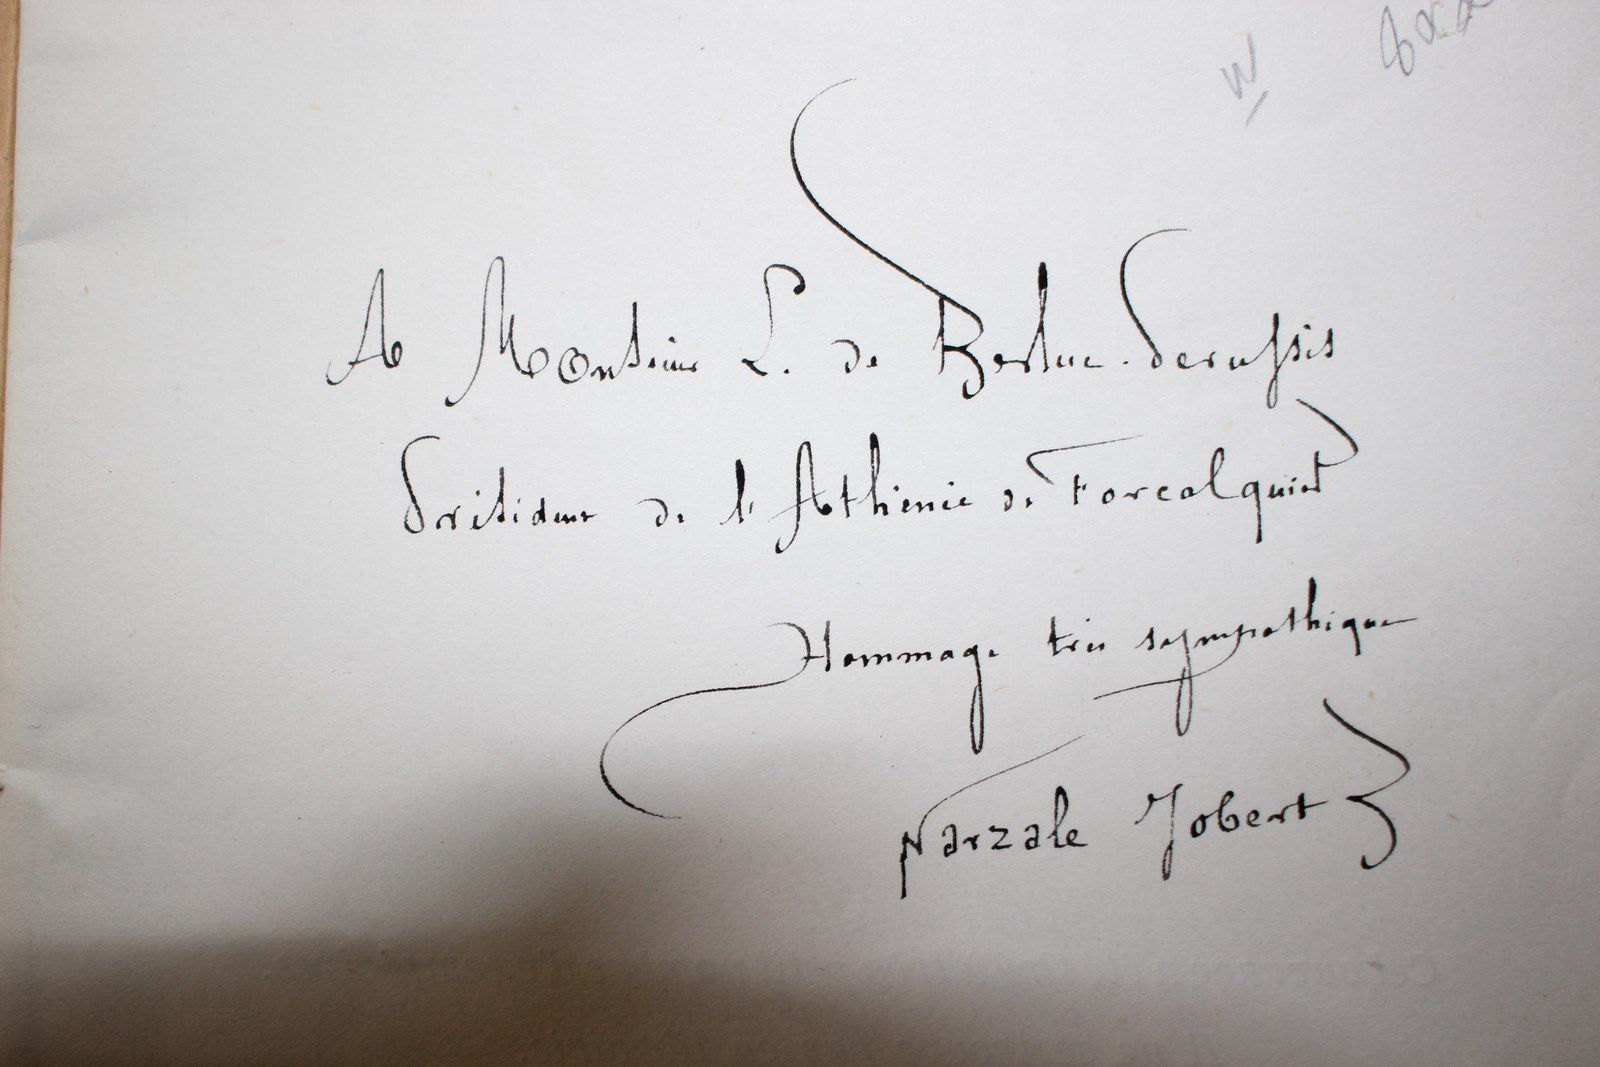 W
A Monsieur L. de Berluc-Perussis
Président de l'Athénée de Forcalquier
Hommage très sympathique
Narzale Jobert